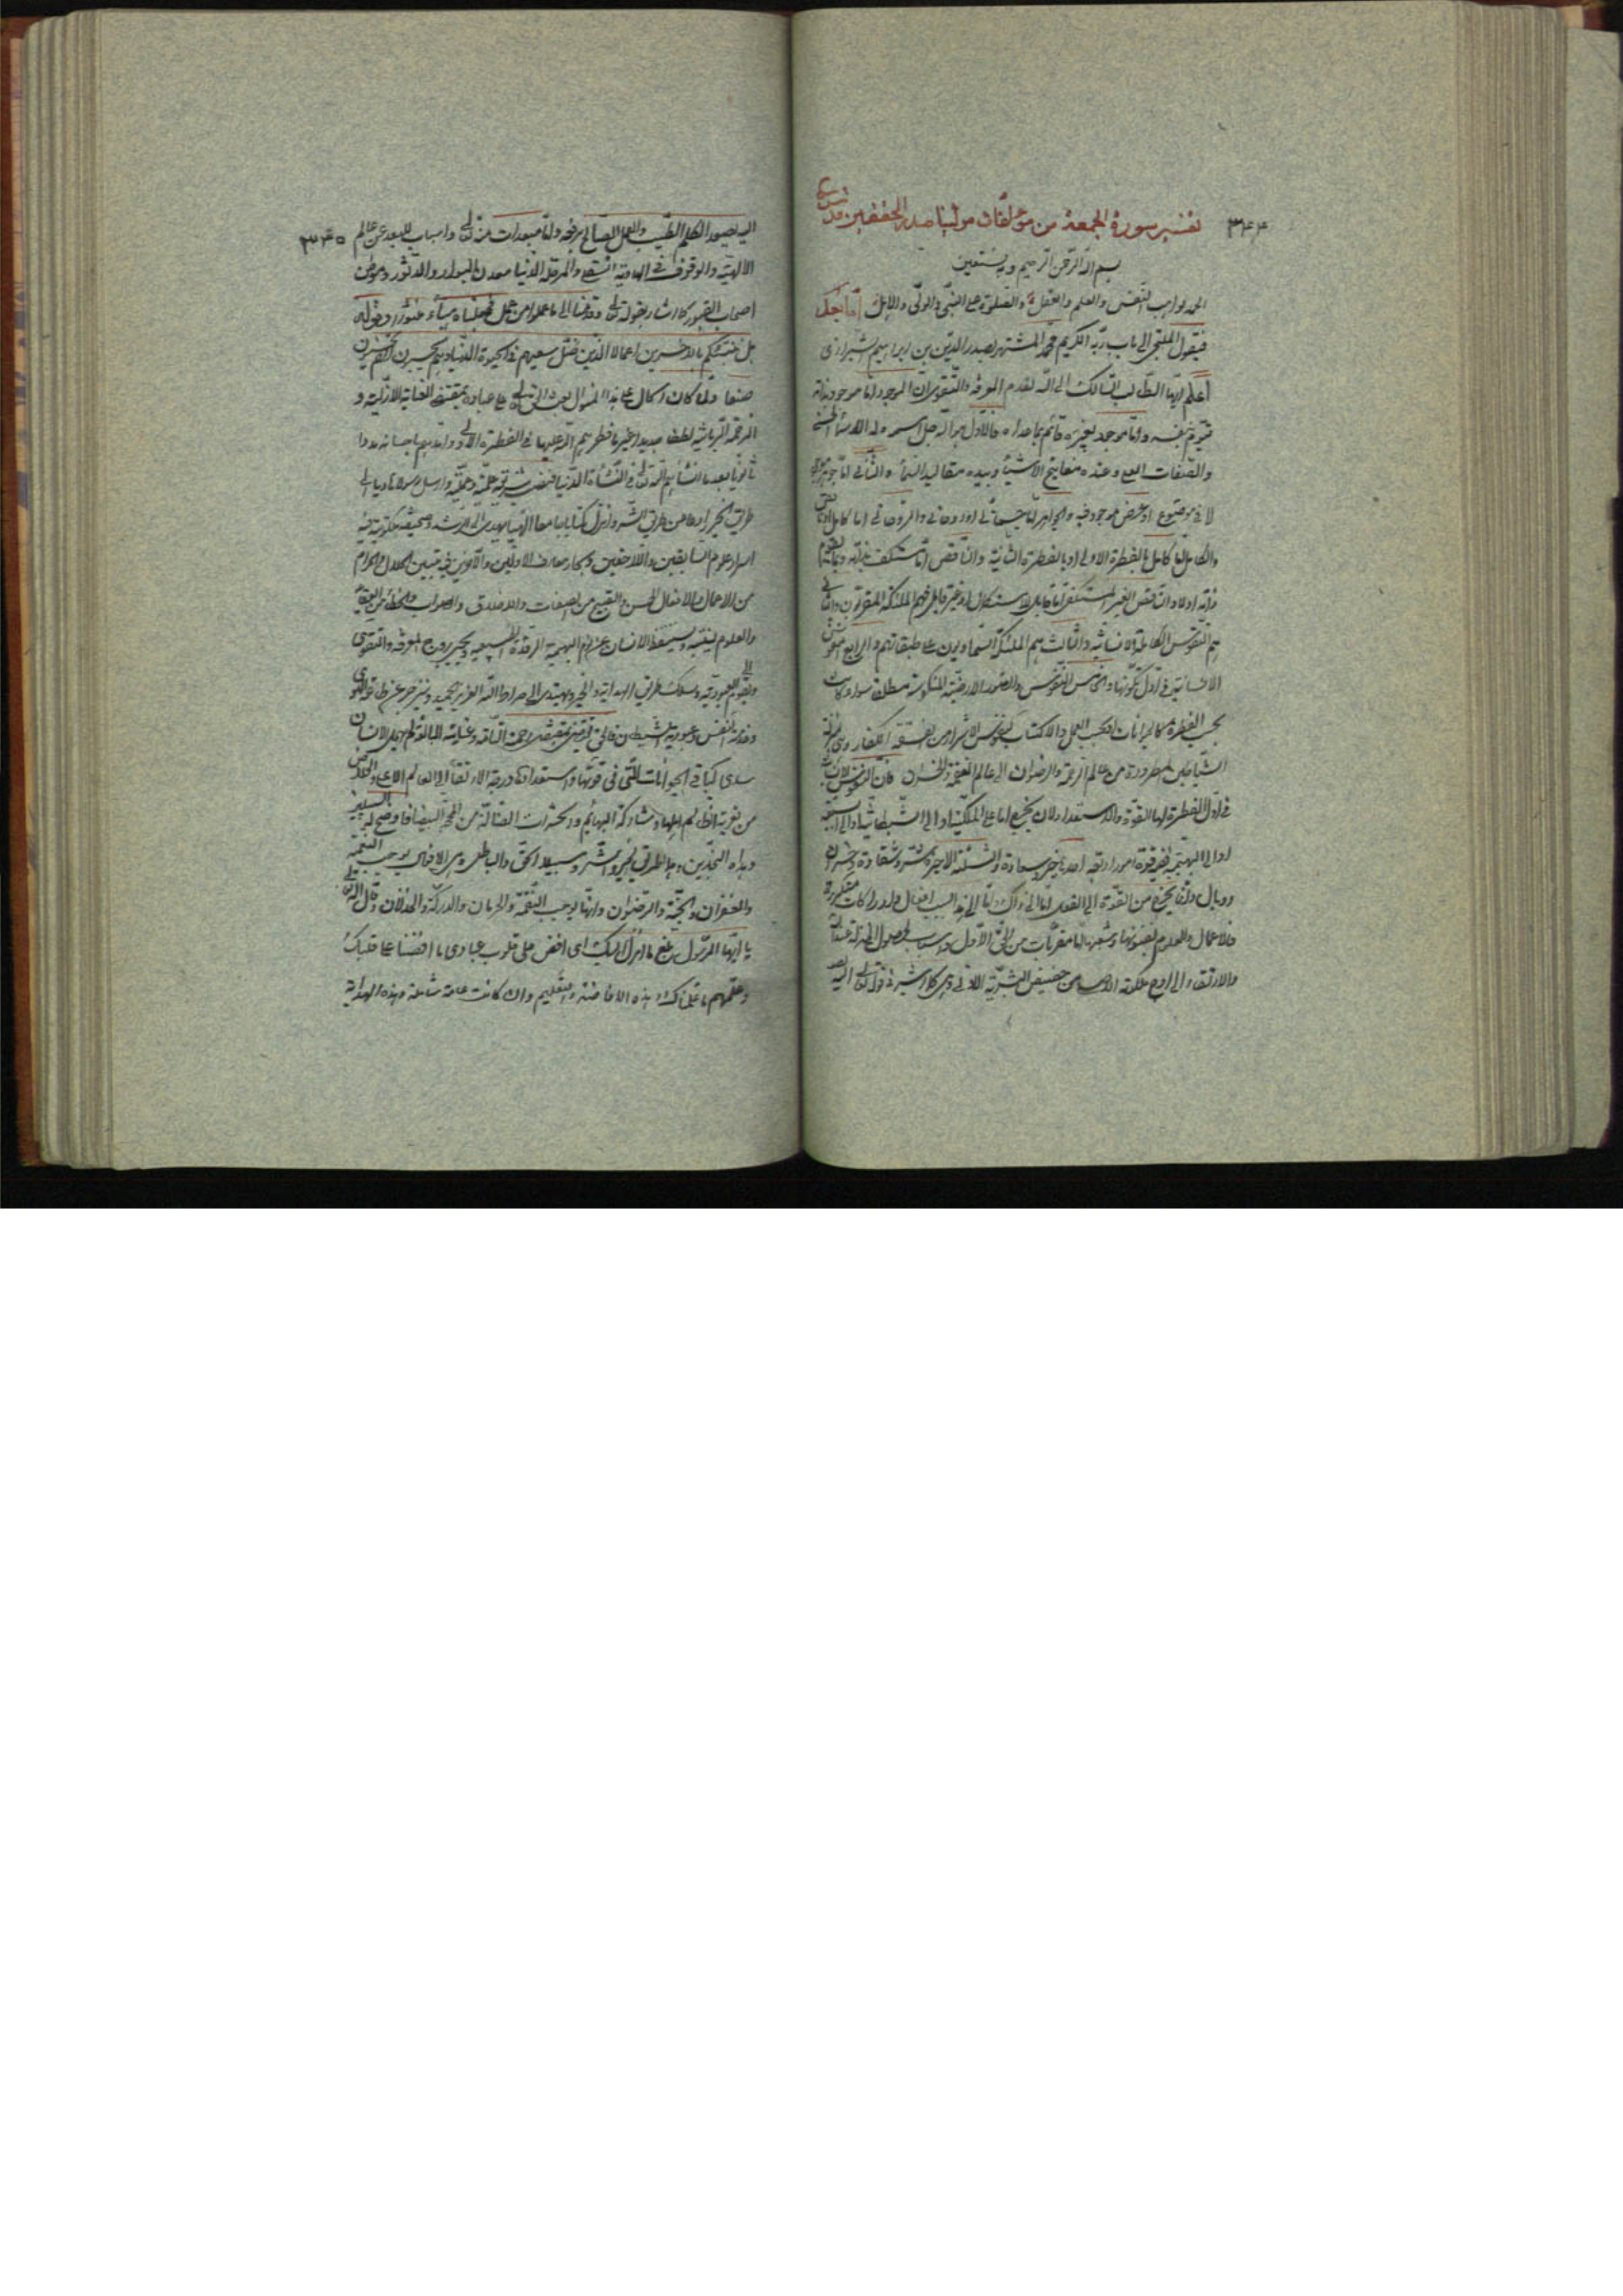 ٣٤٤
تفسير سورة الجمعة من مؤلفات مولينا صدر المحققين قدس سره
بسم الله الرحمن الرحيم وبه نستعين
الحمد لواهب النفس والعلم والعقل والصلوة على النبي والولي والاهل اما بعد
فيقول الملتجى الى باب ربه الكريم محمد المشتهر بصدر الدين بن ابراهيم الشيرازى
اعلم ايها الطالب السالك الى الله بقدم المعرفة والتقوى ان الموجود اما موجود بذاته
قيوم بنفسه واما موجود بغيره قائم بما عداه فالاول هو الله جل اسمه وله الاسماء الحسنى
والصفات العليا وعنده مفاتيح الاشياء وبيده مقاليد السماء والثانى اما جوهر موجود
لا فى موضوع او عرض موجود فيه والجواهر اما جسمانى او روحانى والروحانى اما كامل او ناقص
والكامل اما كامل بالفطرة الاولى او بالفطرة الثانية والناقص اما مستكف بذاته وبما يقوم
ذاته اولا والناقص الغير المستكفى اما قابل للاستكمال او غير قابل فهم الملئكة المقربون والثانى
هم النفوس الكاملة الانسانية والثالث هم الملئكة السماويون على طبقاتهم والرابع النفوس
الانسانية فى اول تكونها والخامس النفوس والصور الارضية المنكوسة مطلقا سواء كانت
بحسب الفطرة كالحيوانات او بحسب العمل والاكتساب كنفوس الاشرار من الفسقة الكفار وهى
الشياطين المطرودة من عالم الرحمة والرضوان الى عالم النقمة والخسران فان النفوس الانسانية
فى اول الفطرة لها القوة والاستعداد لان يخرج اما على الملكية او الى الشيطانية او الى السبعية
او الى البهيمية ففى قوة امور اربعة احدها خير وسعادة والثلثة الاخيرة شر وشقاوة وخسران
ووبال وانما يخرج من القوة الى الفعل اما الى ذاك واما الى هذه بسبب افعال وادراكات متكررة
فالاعمال والعلوم بعضها اما مقربات من الحق الاول واسباب لحصول المنزلة عند الله
والارتقاء الى اوج ملكته الاعلى من حضيض البشرية الادنى كما اشير فى قوله تعالى اليه يصعد
٣٤٥
اليه يصعد الكلم الطيب والعمل الصالح يرفعه واما مبعدات منه تعالى واسباب للبعد عن عالم
الالهية والوقوف فى الهاوية السفلى والمرقد الدنيا معدن البوار والدثور وموطن
اصحاب القبور كما اشار بقوله تعالى وقدمنا الى ما عملوا من عمل فجعلناه هباء منثورا وقوله
هل ننبئكم بالاخسرين اعمالا الذين ضل سعيهم فى الحيوة الدنيا وهم يحسبون انهم يحسنون
صنعا ولما كان الحال على هذا المنوال بعث الله تعالى على عباده بمقتضى العناية الازلية و
الرحمة الربانية لطفا جديدا غير ما فطرهم الله عليها فى الفطرة الاولى وامدهم باحسانه مددا
ثانويا بعد ما انشأهم الله تعالى فى النشأة الدنيا
طريق الخير زاجرا عن طريق الشر وانزل كتابا جامعا الهيا يهدى الى الرشد وصحيفة مكتوبة فيه
اسرار علوم السابقين واللاحقين وبحار معارف الاولين والآخرين فيه تبيين الحلال والحرام
من الاعمال والافعال الحسن والقبيح من الصفات والاخلاق والصواب والخطاء من العقائد
والعلوم لينبه ويستيقظ الانسان عن نوم البهيمية ورقدة السبعية ويحيى بروح المعرفة والتقوى
ويقوم الى العبودية وسلوك طريق الهداية والخير ويهتدى الى صراط الله العزيز الحميد وينزجر عن طاعة الهوى
وخدمة النفس وعبودية الشيطان فالحق تعالى بمقتضى رحمته السابقة وعنايته البالغة لم يهمل الانسان
سدى كباقى الحيوانات التى فى قوتها واستعدادها درجة الارتقاء الى العالم الاعلى والخلاص
من مشاركة البهائم والحشرات الضالة عن المحجة البيضاء فاوضح له السبيل
وهداه النجدين وهما طريقى الخير والشر وسبيلا الحق والباطل يوجب النعمة
والغفران والجنة والرضوان وايها يوجب النقمة والحرمان والدركة والخذلان وقال الله تعالى
يا ايها الرسول بلغ ما انزل اليك اى افض على قلوب عبادى ما افضنا على قلبك
وعلمهم ما علمناك وهذه الافاضة والتعليم وان كانت عامة شاملة وهذه الهداية